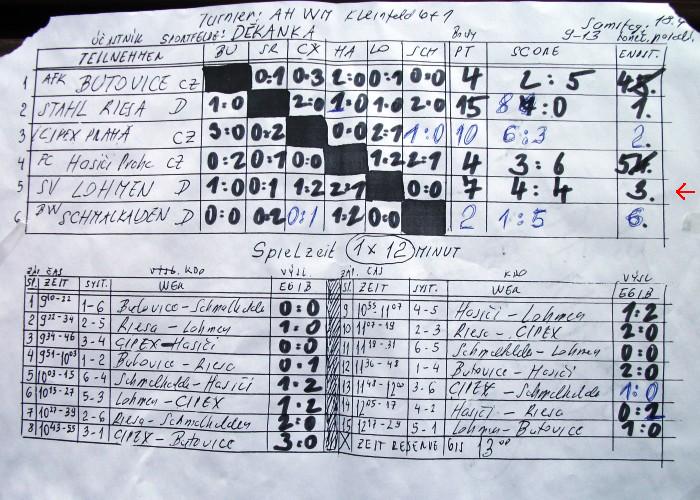 Turnier: AH WM Kleinfeld 6+1
Samsteg. 19.4
ÚČASTNÍK SPORTFELD: DĚKANKA
9-13 konč. pořadí
TEILNEHMEN BU SR CX HA LO SCH Body PT SCORE ENDIT.
1 AFK BUTOVICE CZ 0:1 0:3 2:0 0:1 0:0 4 2:5
2 STAHL RIESA D 1:0 2:0 1:0 1:0 2:0 15 :0 1.
3 CIPEX PRAHÁ CZ 3:0 0:2 0:0 2:1 1:0 10 6:3 2.
4 FC Hasiči Prahc CZ 0:2 0:1 0:0 1:2 2:1 4 3:6
5 SV LOHMEN D 1:0 0:1 1:2 2:1 0:0 7 4:4 3.
6 BW SCHMALKALDEN D 0:0 0:2 0:1 1:2 0:0 2 1:5 6.
Spielzeit 1x12 MINUT
ZÁP. ČAS KDO VÝSL.
Sp. ZEIT SYST. WER EGIB
1 9 10-22 1-6 Butovice-Schmalkalde 0:0
2 9 22-34 2-5 Riesa-Lohmen 1:0
3 9 34-46 3-4 CIPEX-Hasiči 0:0
4 9 51-10 03 1-2 Butovice-Riesa 0:1
5 10 03-15 6-4 Schmalkalde-Hasiči 1:2
6 10 15-27 5-3 Lohmen-CIPEX 1:2
7 10 27-39 2-6 Riesa-Schmalkalden 2:0
8 10 43-55 3-1 CIPEX-Butovice 3:0
ZÁP. ČAS KDO VÝSL
Sp. ZEIT SYST. WER EGIB
9 10 55-11 07 4-5 Hasiči-Lohmen 1:2
10 11 07-19 2-3 Riesa-CIPEX 2:0
11 11 19-31 6-5 Schmalkalde-Lohmen 0:0
12 11 36-48 1-4 Butovice-Hasiči 2:0
13 11 48-12 00 3-6 CIPEX-Schmalkalde 1:0
14 12 05-17 4-2 Hasiči-Riesa 0:1
15 12 17-29 5-1 Lohmen-Butovice 1:0
X ZEIT RESERVE BIS 13 00